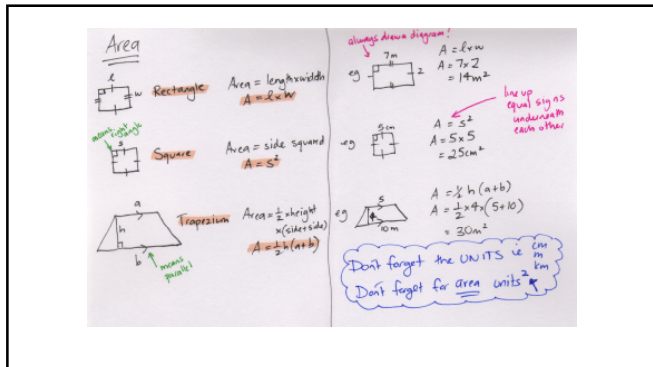 Area
l
w
Rectangle
Area = length x width
A = l x w
means right angle
s
Square
Area = side squared
A = s²
a
h
b
means parallel
Trapezium
Area = ½ x height
x (side + side)
A = ½ h (a+b)
always draw a diagram!
eg
7m
2
A = l x w
A = 7 x 2
= 14m²
line up
equal signs
underneath
each other
eg
5cm
A = s²
A = 5 x 5
= 25cm²
eg
5
4
10m
A = ½ h (a+b)
A = ½ x 4 x (5+10)
= 30m²
Don't forget the UNITS ie cm
m
km
Don't forget for area units²